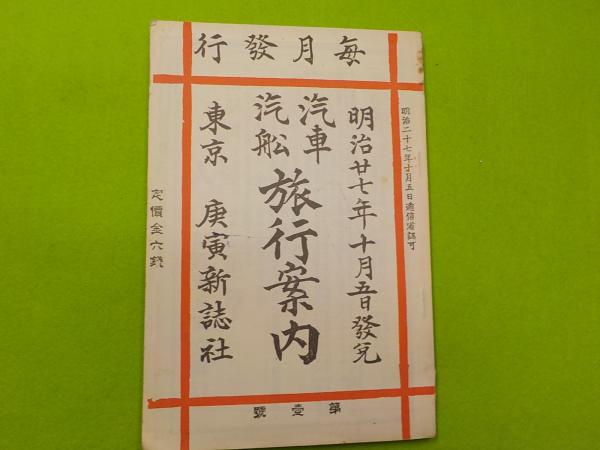 行發月每
明治二十七年十月五日遞信省認可
明治廿七年十月五日發兌
汽車
汽舩
旅行案內
東京 庚寅新誌社
定價金六錢
號壹第